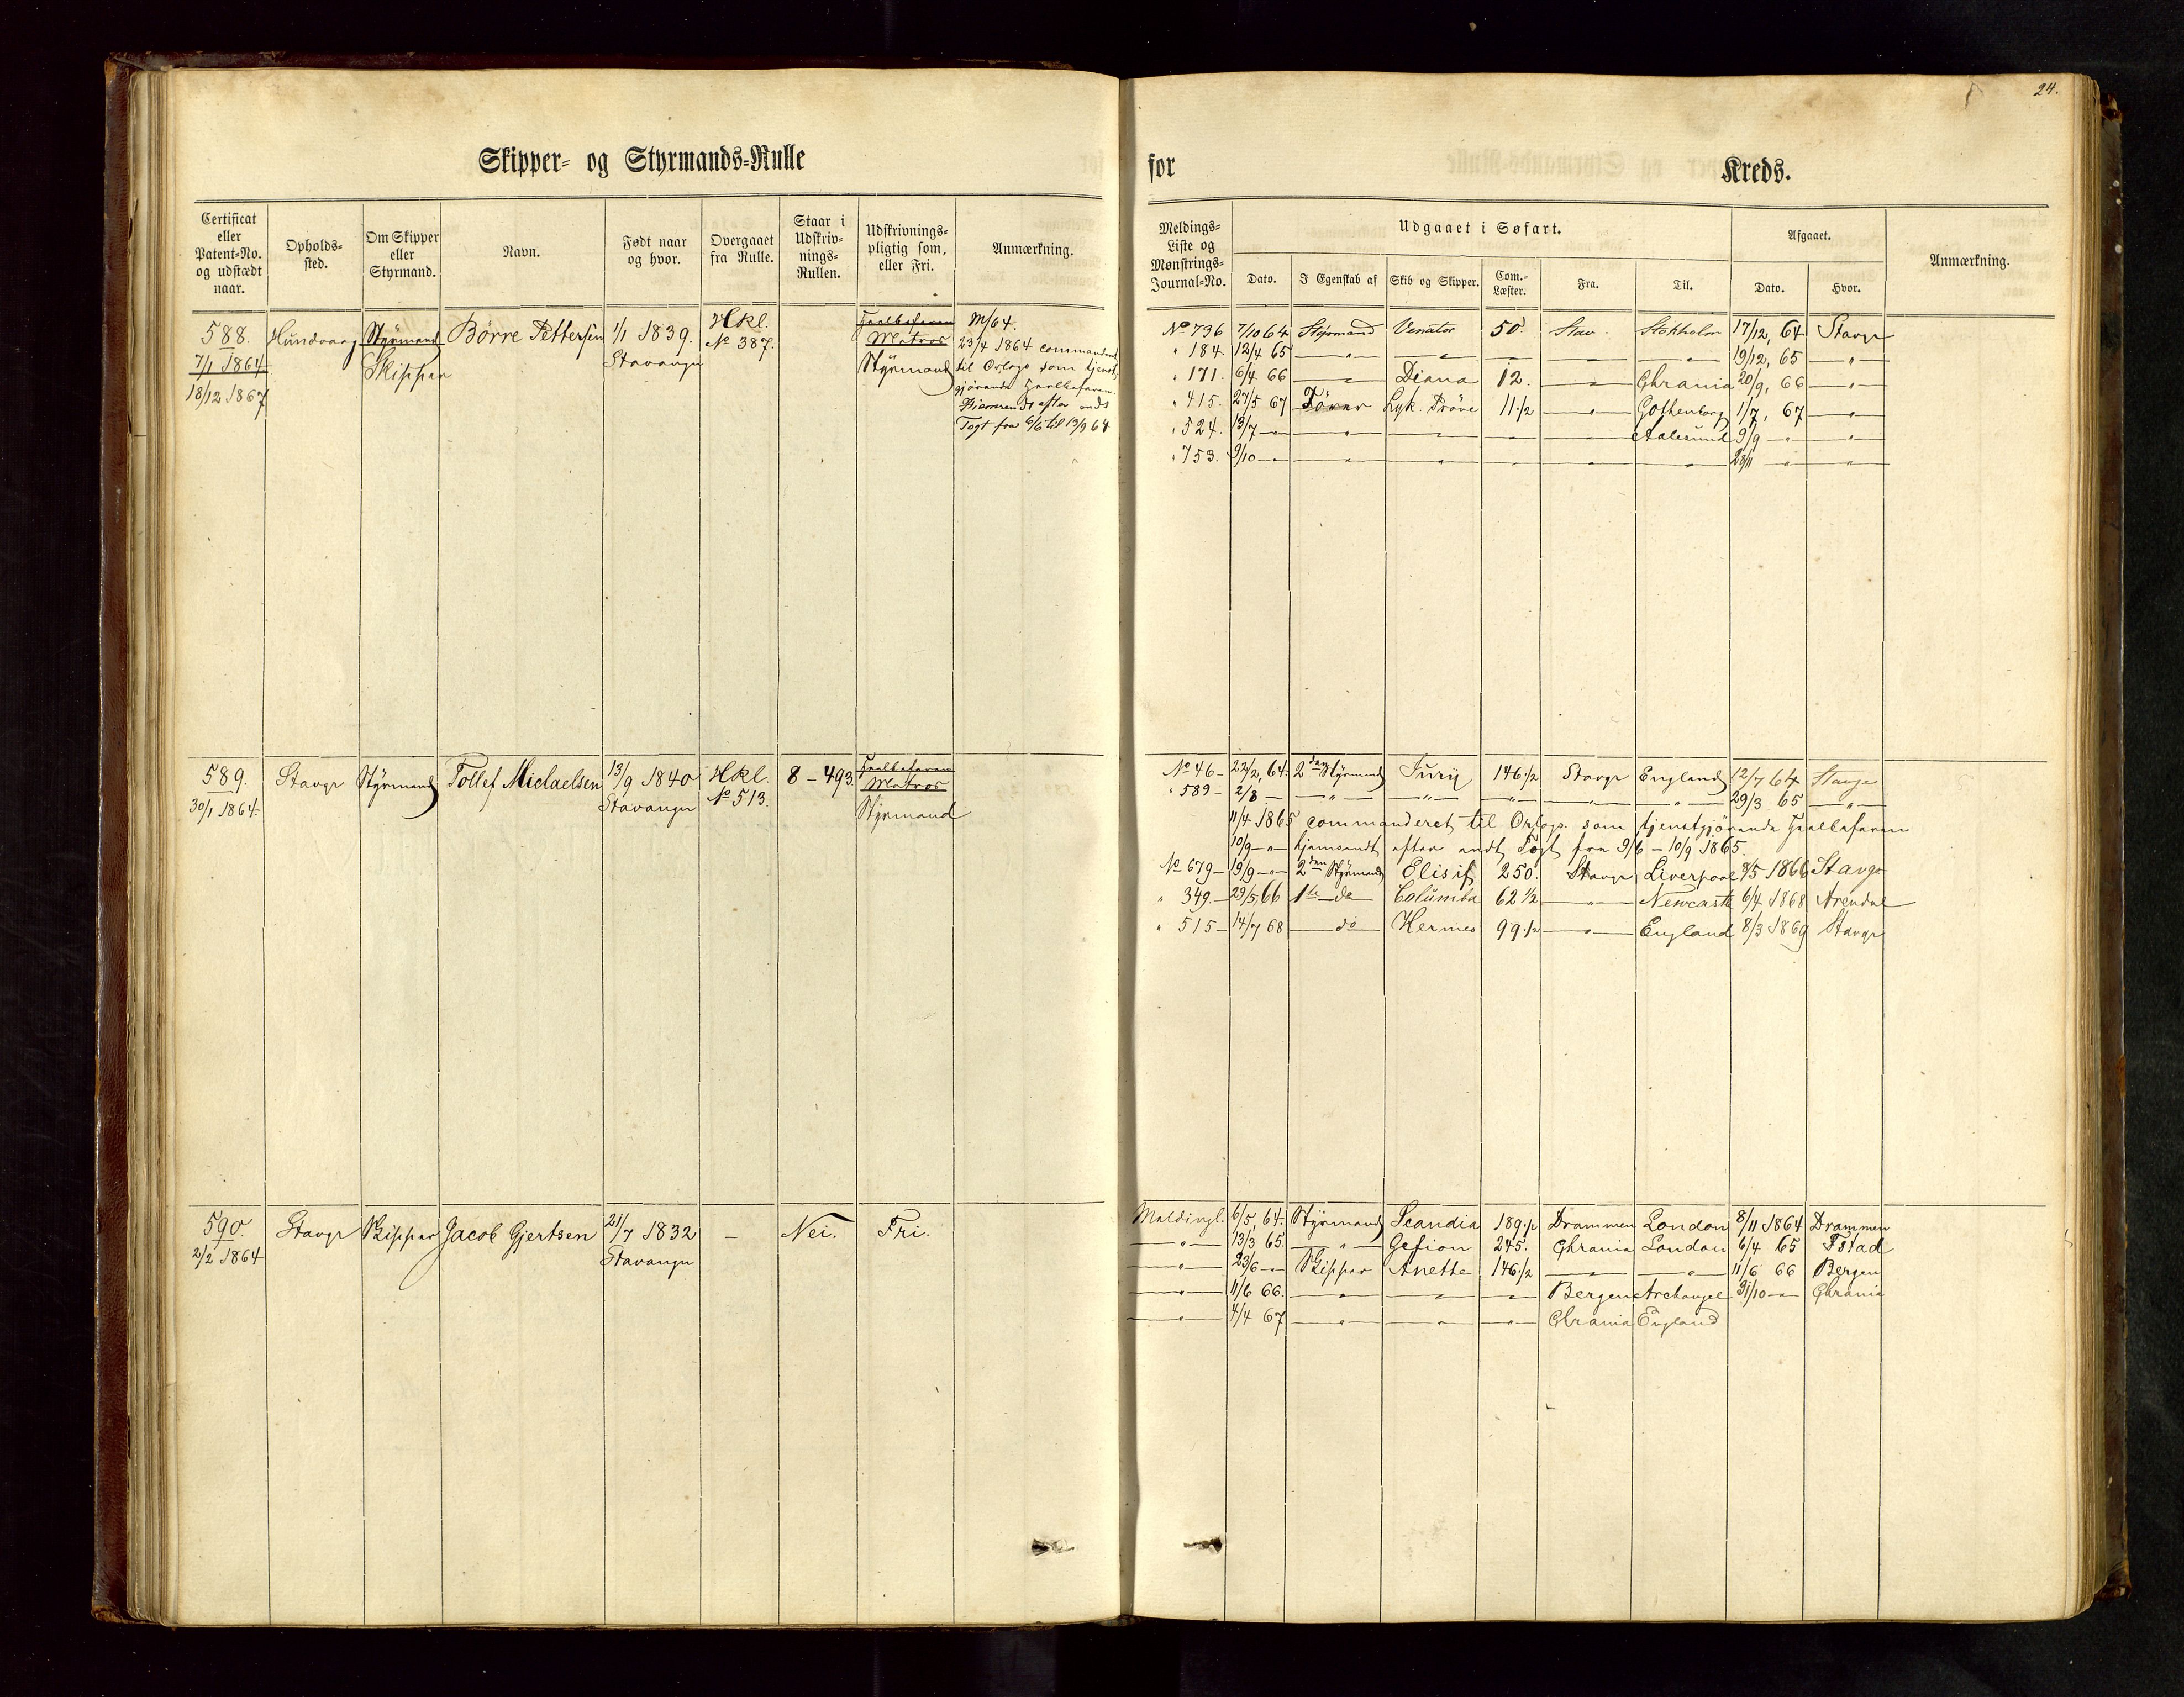 24.
Skipper- og Styrmands-Rulle for Kreds.
Certificat eller Patent-No. og udstædt naar.
Opholds-sted.
Om Skipper eller Styrmand.
Navn.
Født naar og hvor.
Overgaaet fra Rulle.
Staar i Udskriv-nings-Rullen.
Udskrivnings-pligtig som, eller Fri.
Anmærkning.
Meldings-Liste og Mønstrings-Journal-No.
Udgaaet i Søfart.
Dato.
I Egenskab af
Skib og Skipper.
Com.-Læster.
Fra.
Til.
Afgaaet.
Dato.
Hvor.
Anmærkning.
588. Hundvaag Styrmand Börre Pettersen 1/1 1839. Hkl. Heelbefaren M/64.
7/1 1864 Skipper Stavanger No 387. Matros 23/4 1864 commanderet
18/12 1867 Styrmand til Orlogs som tjenst-
gjörende Heelbefaren.
Hjemsendt efter endt
Togt fra 6/6 til 13/9 64
No 736 7/10 64 Styrmand Venator 50. Stav. Stokholm 17/12, 64 Stavgr
" 184. 12/4 65 — " — — " — — " — 19/12, 65 — " —
" 171. 6/4 66 — " — Diana 12. — " — Chrania 20/9, 66 — " —
" 415. 27/5 67 Förer Lyk. Pröve 11 1/2 — " — Gothenborg 1/7, 67 — " —
" 524. 13/7 — " — " — — " — — " — — " — Aalesund 9/9 — " — " —
" 753. 9/10 — " — " — — " — — " — — " — — " — 28/11 — " — " —
589. Stavgr Styrmand Tollef Michaelsen 13/9 1840 Hkl. 8 - 493. Heelbefaren
30/1 1864. Stavanger No 513. Matros
Styrmand
No 46 — 22/2, 64. 2den Styrmand Jury 146 1/2 Stavgr England 12/7 64 Stavgr
" 589 — 2/8 — — " — — " — — " — — " — — " — 29/3 65 — " —
11/4 1865 commanderet til Orlogs. som tjenstgjörende Heelbefaren
10/9 — " — hjemsendt efter endt Togt fra 9/6 — 10/9 1865.
No 679 — 19/9 — " — 2den Styrmand Elisif 250. Stavgr Liverpool 8/5 1866 Stavgr
" 349. — 29/5, 66 1ste do Columba 62 1/2 — " — Newcastle 6/4 1868 Arendal
" 515 — 14/7 68 — do — Hermes 99 1/2 — " — England 8/3 1869 Stavgr
590. Stavgr Skipper Jacob Gjertsen 21/7 1832 — Nei. Fri.
2/2 1864 Stavanger
Meldingsl. 6/5, 64. Styrmand Scandia 189 1/2 Drammen London 8/11 1864 Drammen
— " — 13/3 65. — " — Gefion 245. Chrania London 6/4 65 Fstad
— " — 23/6 — " — Skipper Anette 146 1/2 — " — — " — 11/6 66 Bergen
— " — 11/6 66. — " — — " — — " — Bergen Archangel 31/10 — " — Chrania
— " — 4/4 67 — " — — " — — " — Chrania England